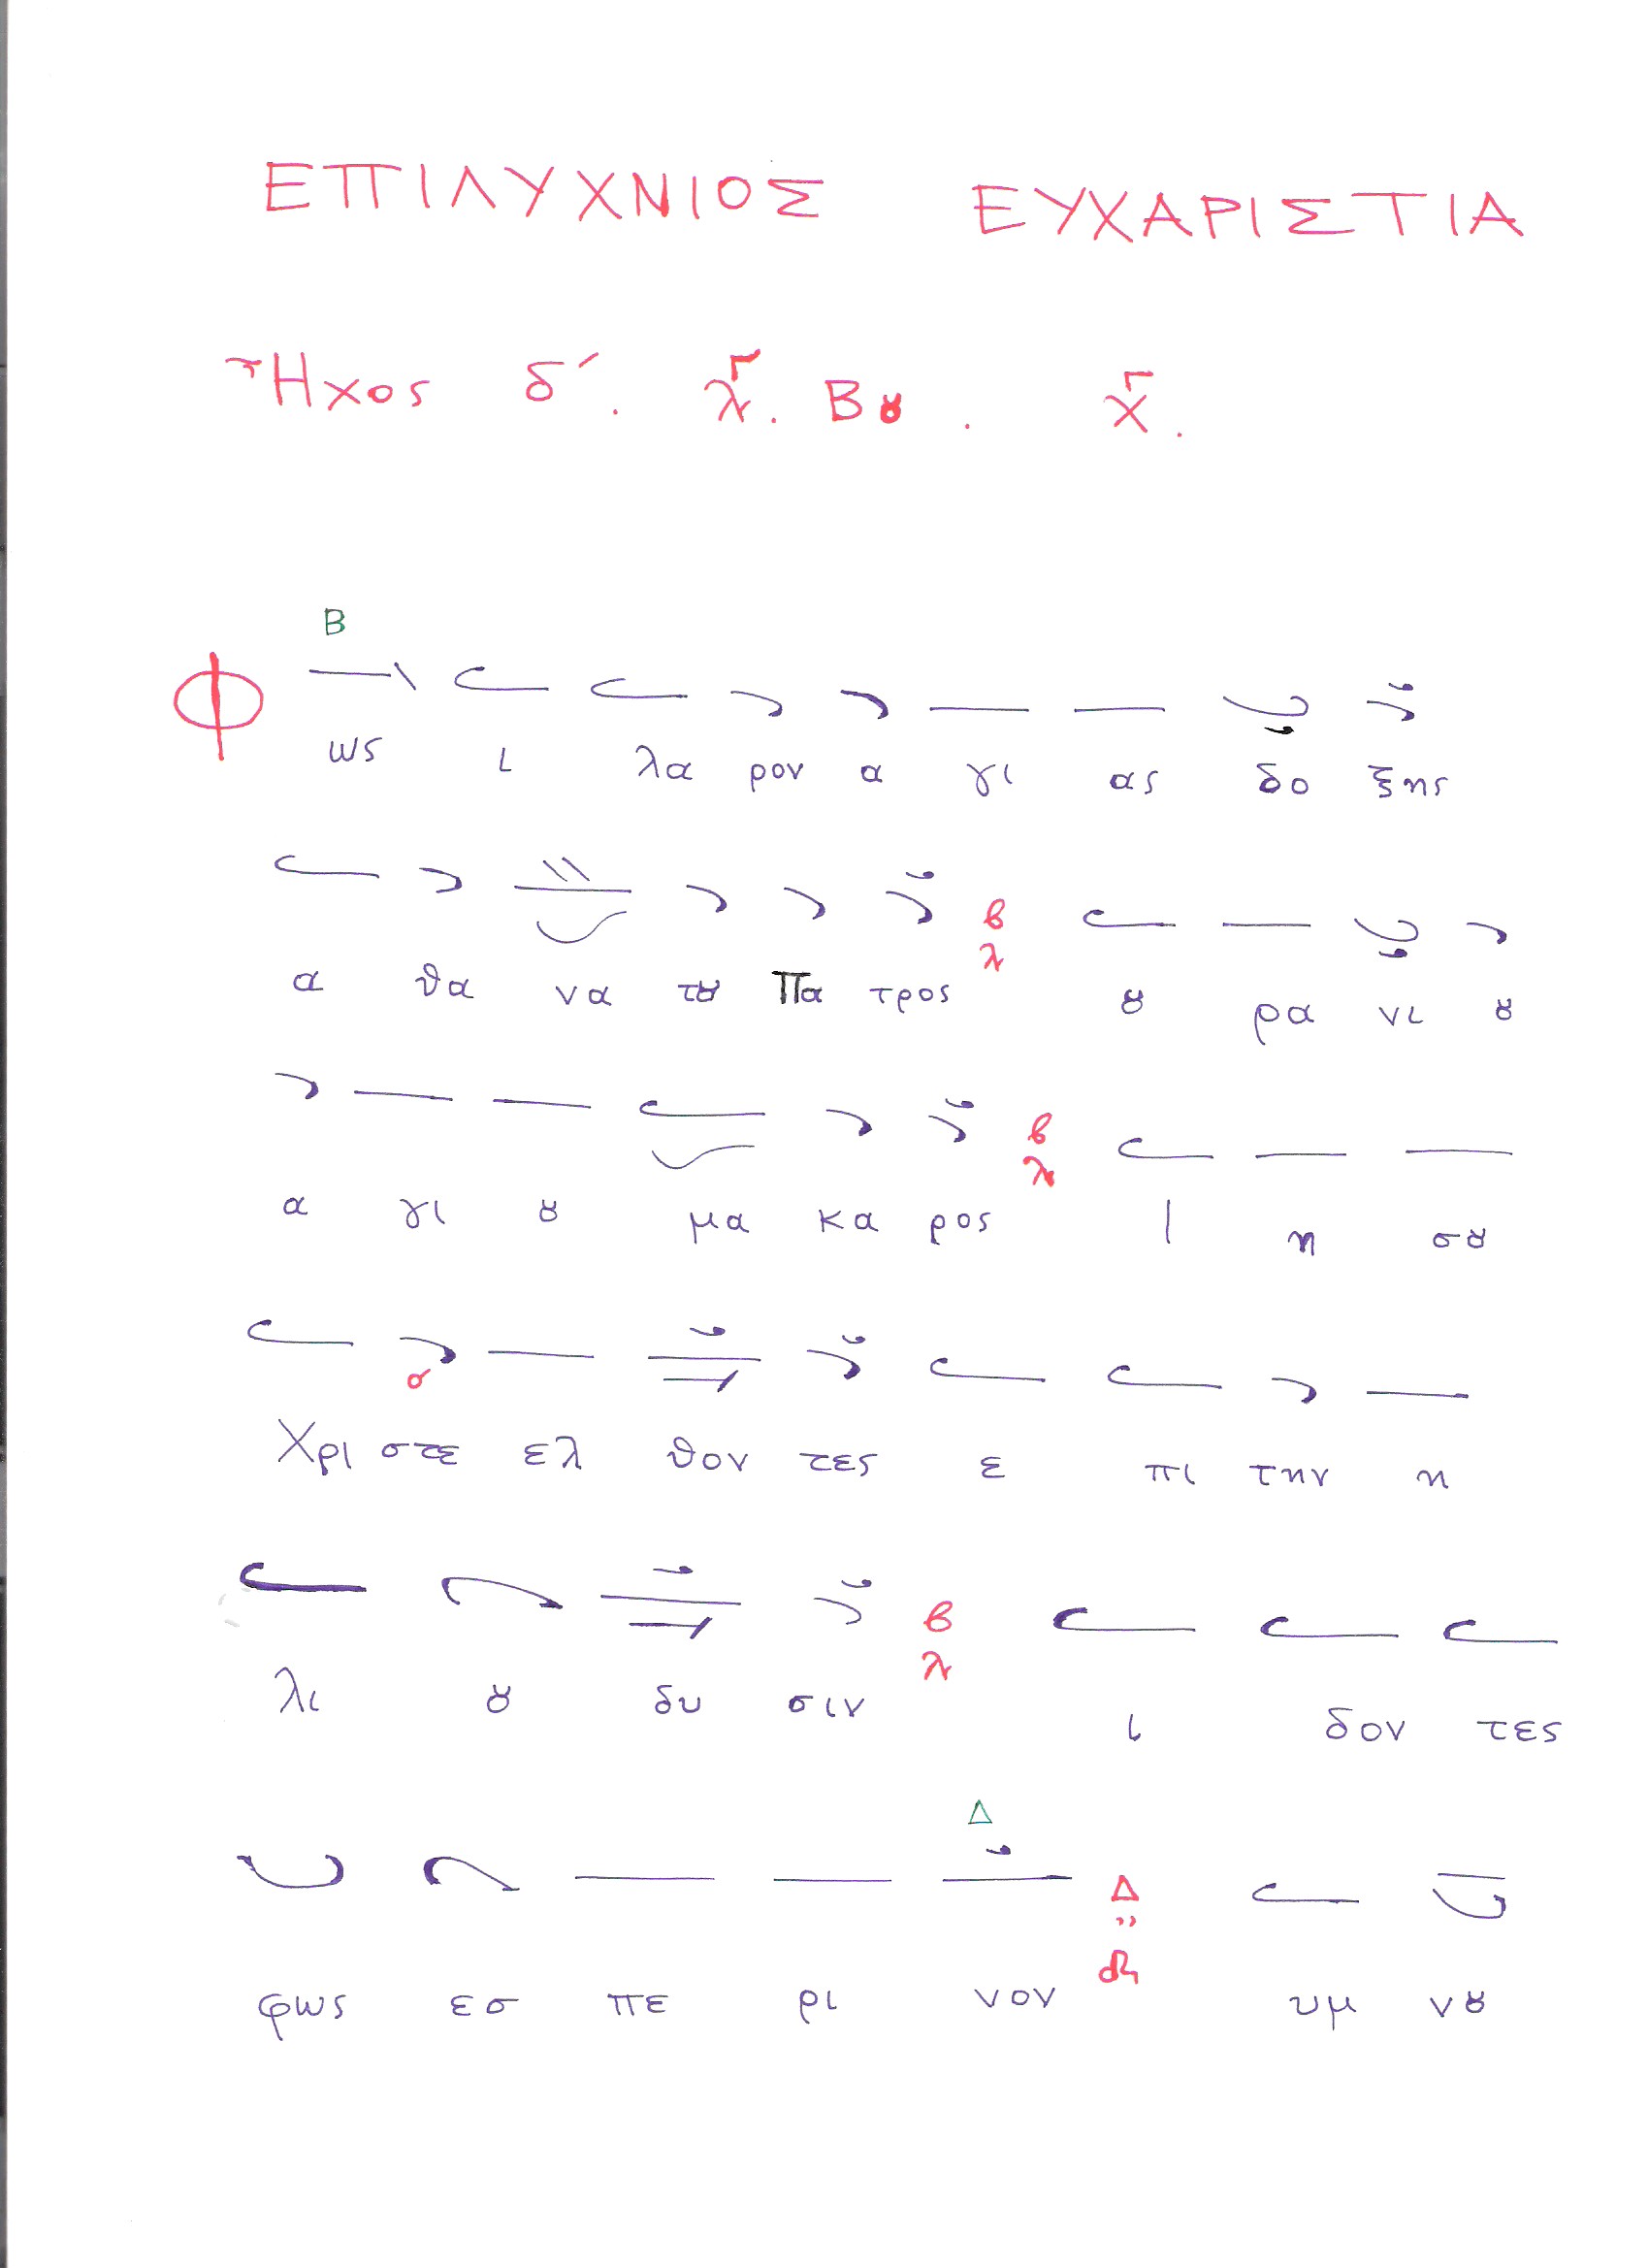 ΕΠΙΛΥΧΝΙΟΣ ΕΥΧΑΡΙΣΤΙΑ
Ἦχος δ´. Βȣ.
Β
Φ ως ι λα ρον α γι ας δο ξης
α θα να τȣ Πα τρος ȣ ρα νι ȣ
α γι ȣ μα κα ρος Ι η σȣ
Χρι στε ελ θον τες ε πι την η
λι ȣ δυ σιν ι δον τες
Δ
φως εσ πε ρι νον Δ υμ νȣ